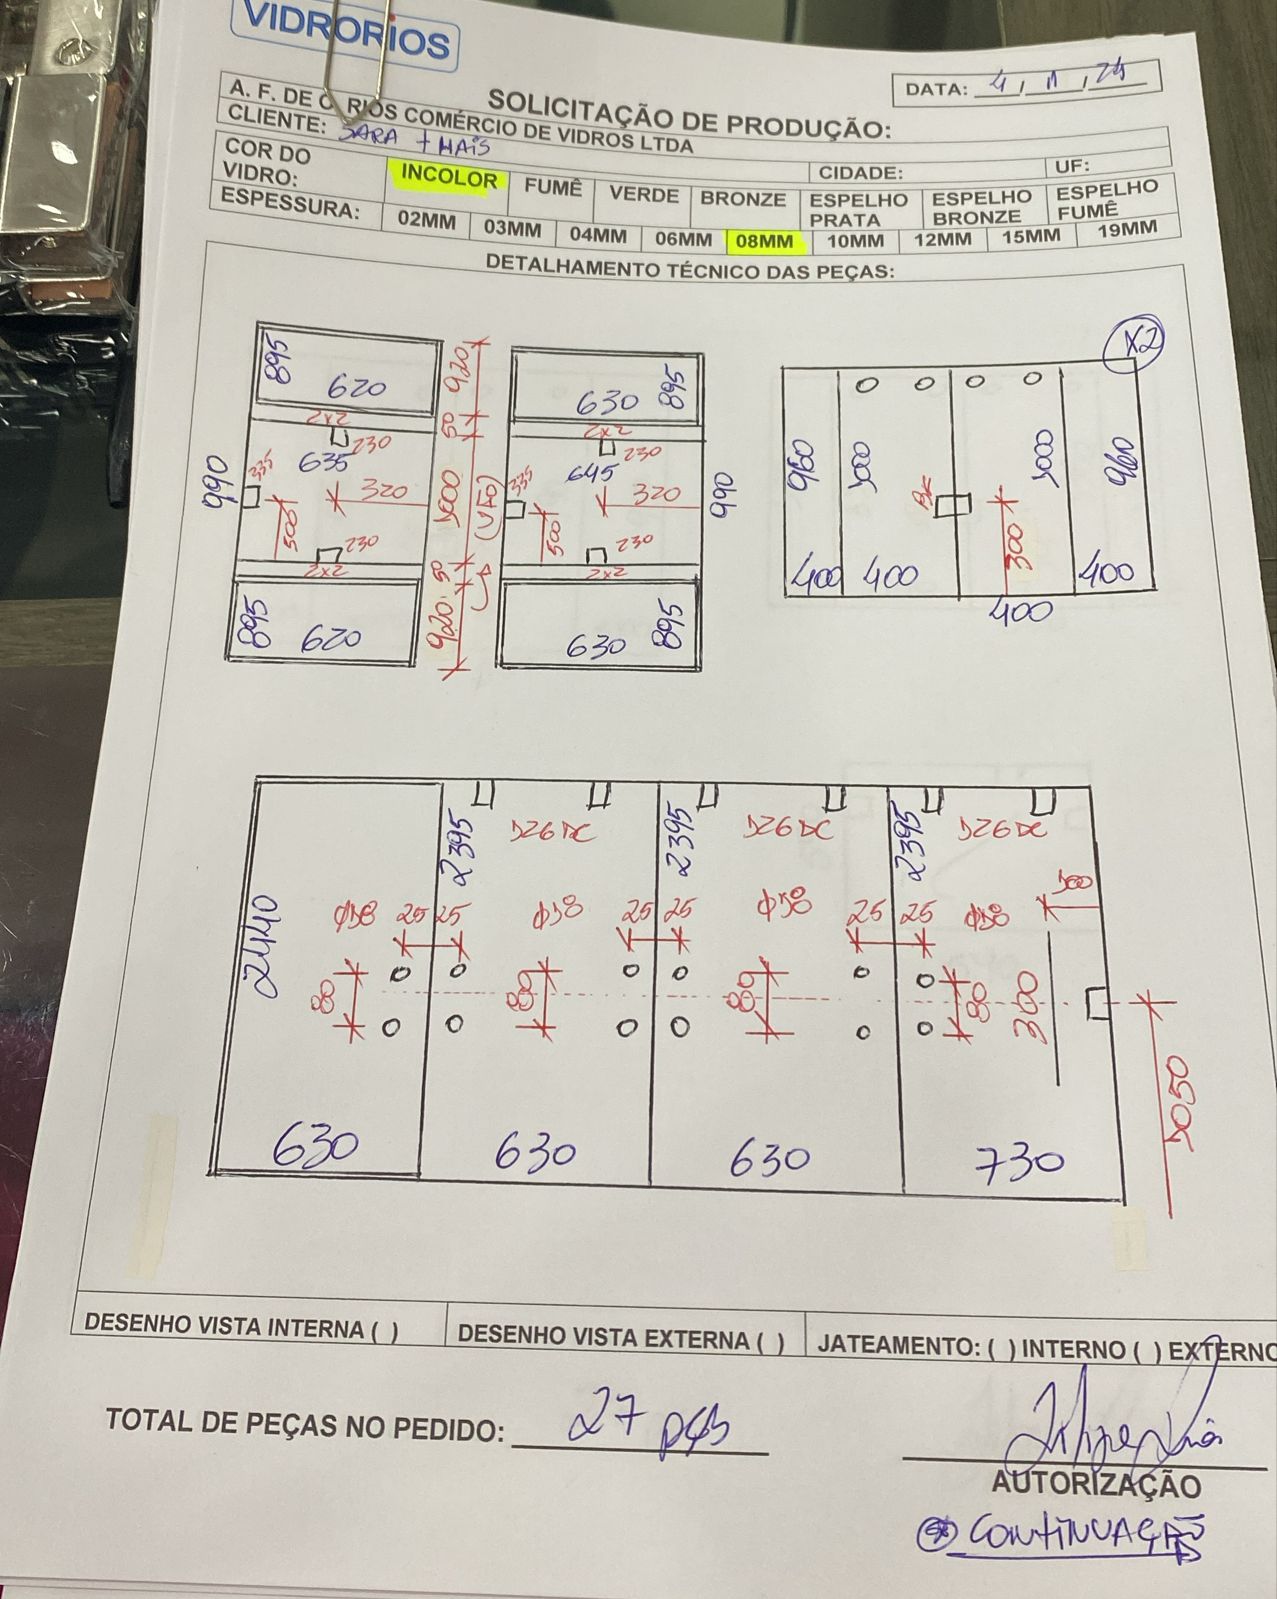 VIDRORIOS
DATA: 4, 11, 24
SOLICITAÇÃO DE PRODUÇÃO:
A. F. DE O. RIOS COMÉRCIO DE VIDROS LTDA
CLIENTE: SARA + MAIS
CIDADE: UF:
COR DO VIDRO: INCOLOR FUMÊ VERDE BRONZE ESPELHO PRATA ESPELHO BRONZE ESPELHO FUMÊ
ESPESSURA: 02MM 03MM 04MM 06MM 08MM 10MM 12MM 15MM 19MM
DETALHAMENTO TÉCNICO DAS PEÇAS:
895 620 920 630 895 X2
2x2 50 2x2
230 230
635 645
990 335 320 1000 (VÃO) 335 320 990
500 500
230 230
2x2 50 2x2
895 620 920 630 895
960 1000 1000 960
300
400 400 400
400
2395 2395 2395
126 DC 126 DC 126 DC
2440 Φ18 25 25 Φ18 25 25 Φ18 25 25 Φ18 100
80 80 80 80 300
1050
630 630 630 730
DESENHO VISTA INTERNA ( ) DESENHO VISTA EXTERNA ( ) JATEAMENTO: ( ) INTERNO ( ) EXTERNO
TOTAL DE PEÇAS NO PEDIDO: 27 pçs
AUTORIZAÇÃO
CONTINUAÇÃO